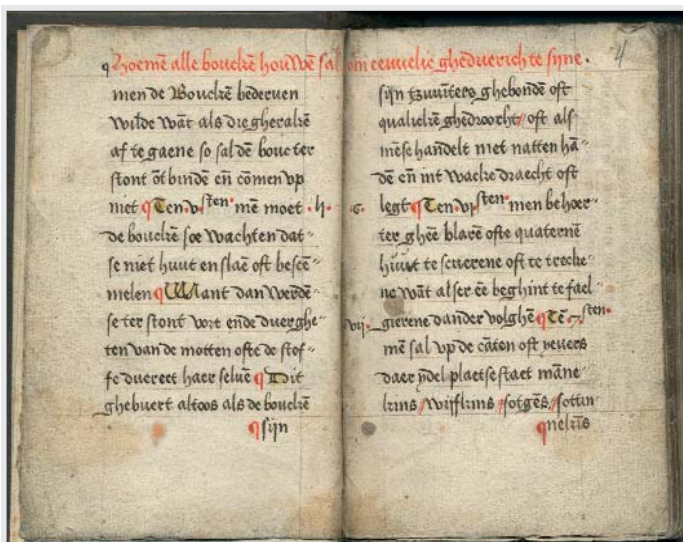 ¶ Hoemē alle bouckē houwē sal om eeuwelic gheduerich te sijne.
men de Bouckē bederuen
wilde wāt als die gherakē
af te gaene so sal dē bouc ter
stont ōtbindē eñ cōmen vp
niet ¶ Ten .v.sten mē moet .h.
de bouckē soe wachten dat
se niet huut en slaē oft besce
melen ¶ Want dan werdē
se ter stont vort ende duer ghe
ten van de motten ofte de stof
fe duereet haer seluē ¶ Dit
ghebuert altoos als de bouckē
¶ sijn
4
sijn tzwinters ghebondē oft
qualickē ghedroocht // oft als
mēse handelt met natten hā
dē eñ int wacke draecht oft
.6. legt ¶ Ten .vi.sten men behoer
ter gheē blarē ofte quaternē
huut te scuerene oft te trecke
ne wāt alser eē beghint te fael
vij. gierene dander volghē ¶ Tē .7.sten
mē sal vp de cāten oft yeuers
daer ydel plaetse staet māne
kins // wijfkins // sotgēs // sottin
¶ nekīs